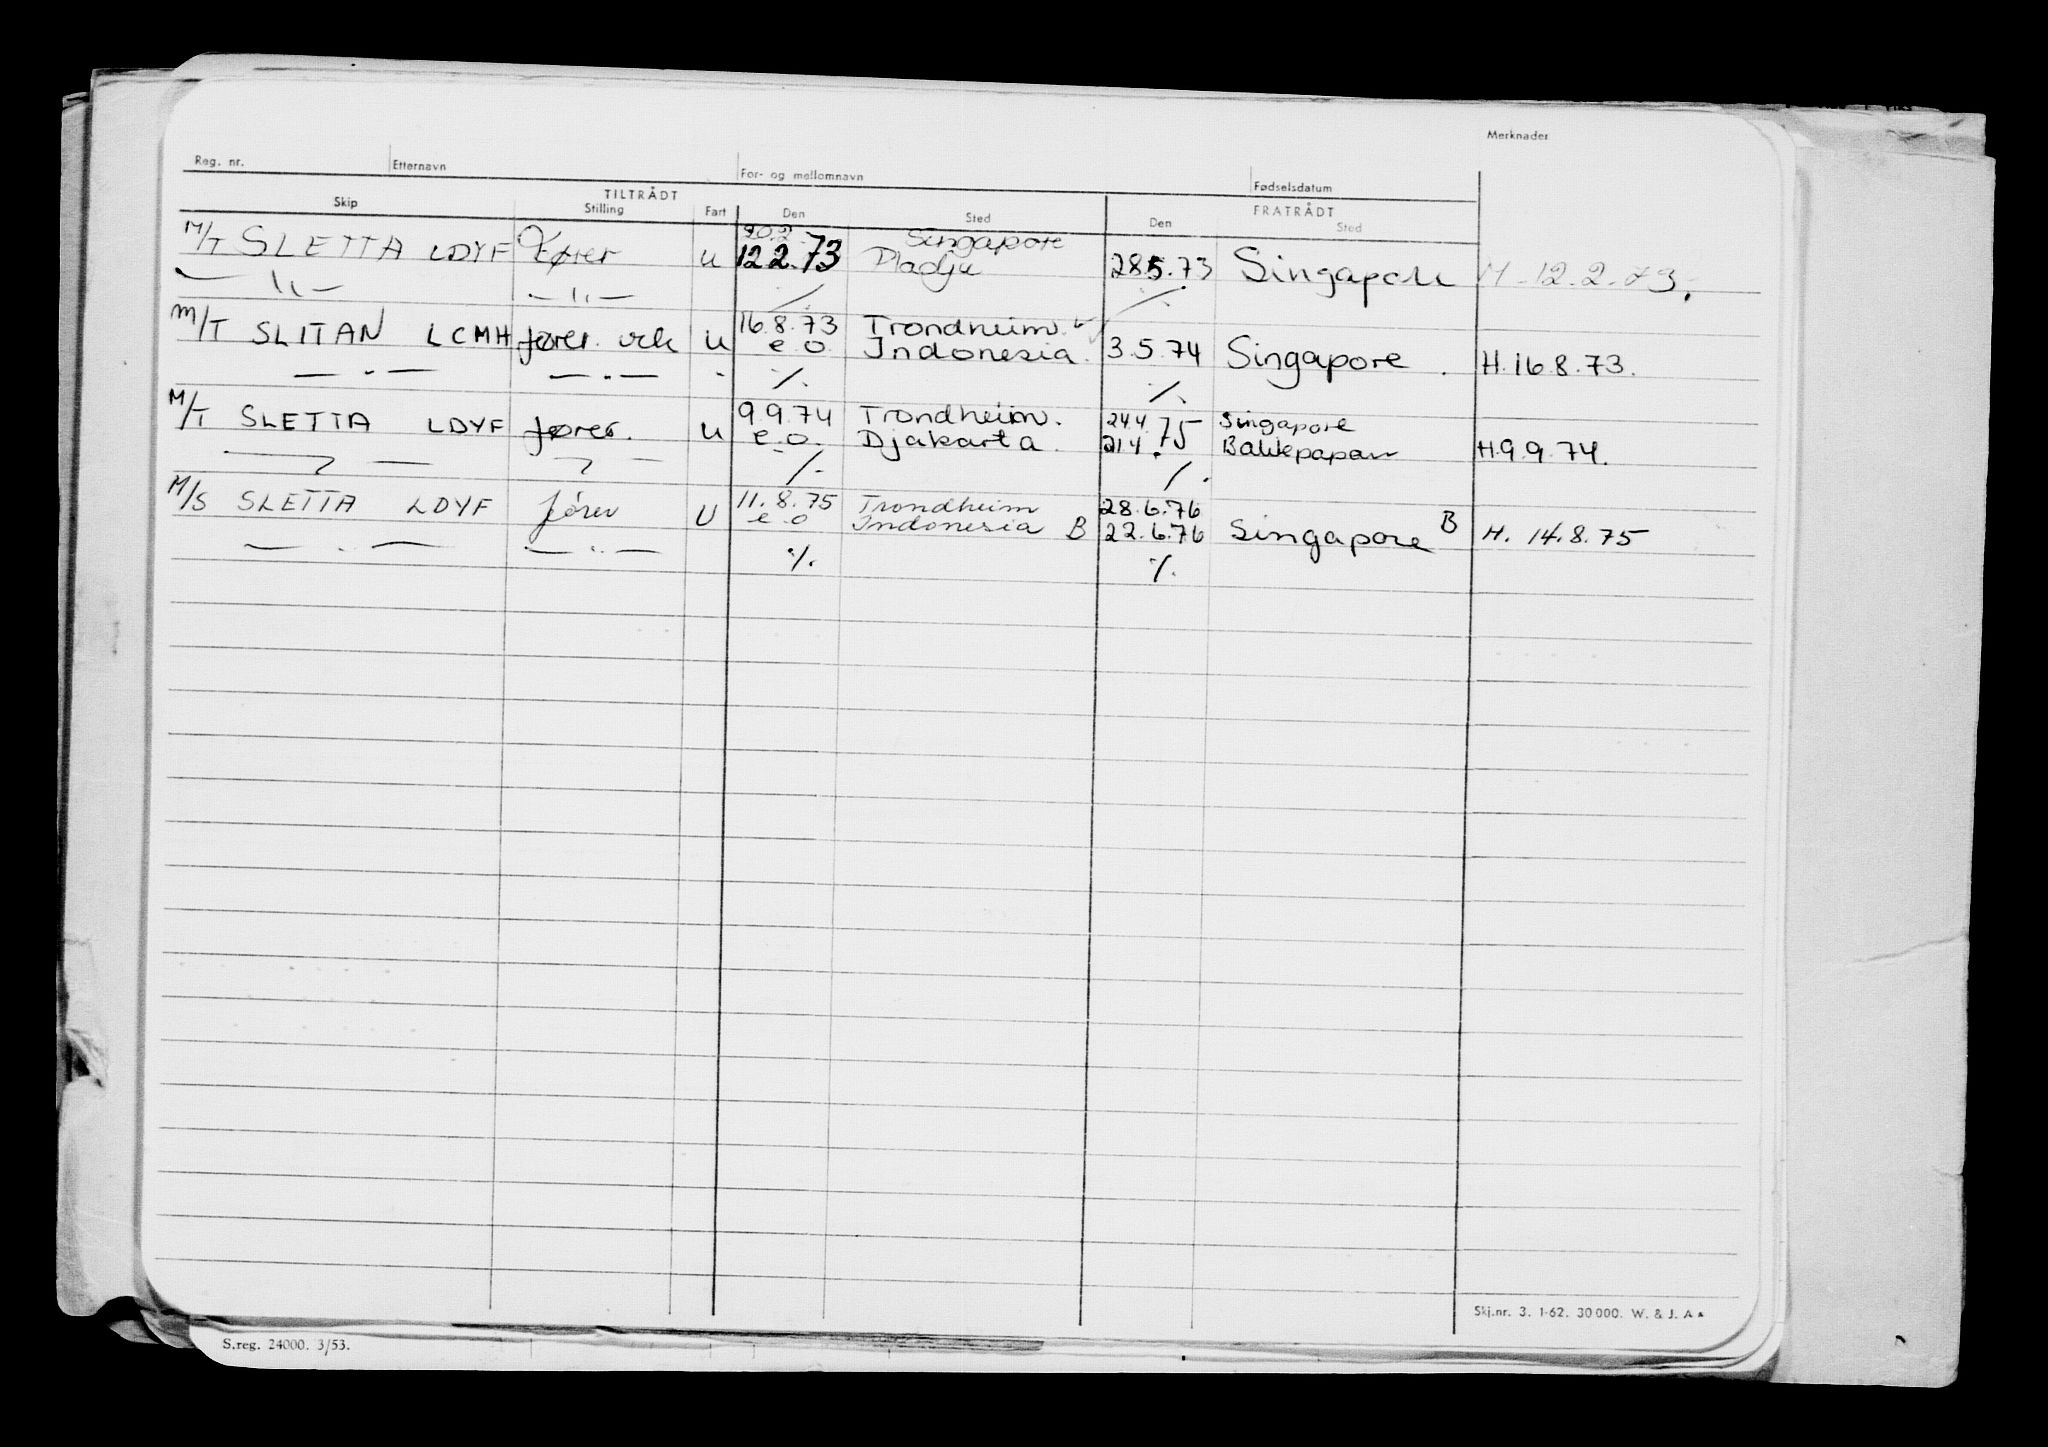 Merknader
Reg. nr. Etternavn For- og mellomnavn Fødselsdatum
TILTRÅDT FRATRÅDT
Skip Stilling Fart Den Sted Den Sted
20.2. Singapore
M/T SLETTA LDYF Fører u 12.2.73 Pladju 28.5.73 Singapore H. 12.2.73.
— " — — " — ./. ./.
16.8.73 Trondheim.
M/T SLITAN LCMH fører. vik u e.o. Indonesia. 3.5.74 Singapore. H.16.8.73.
— " — — " — " ./. ./.
9.9.74 Trondheim. 24.4 Singapore
M/T SLETTA LDYF fører. u e.o. Djakarta. 21.4.75 Balikpapan H.9.9.74.
— " — — " — ./. ./.
11.8.75 Trondheim 28.6.76
M/S SLETTA LDYF fører U e.o Indonesia B 22.6.76 Singapore B H. 14.8.75
— " — — " — ./. ./.
Skj.nr. 3. 1-62. 30 000. W. & J. A
S.reg. 24000. 3/53.